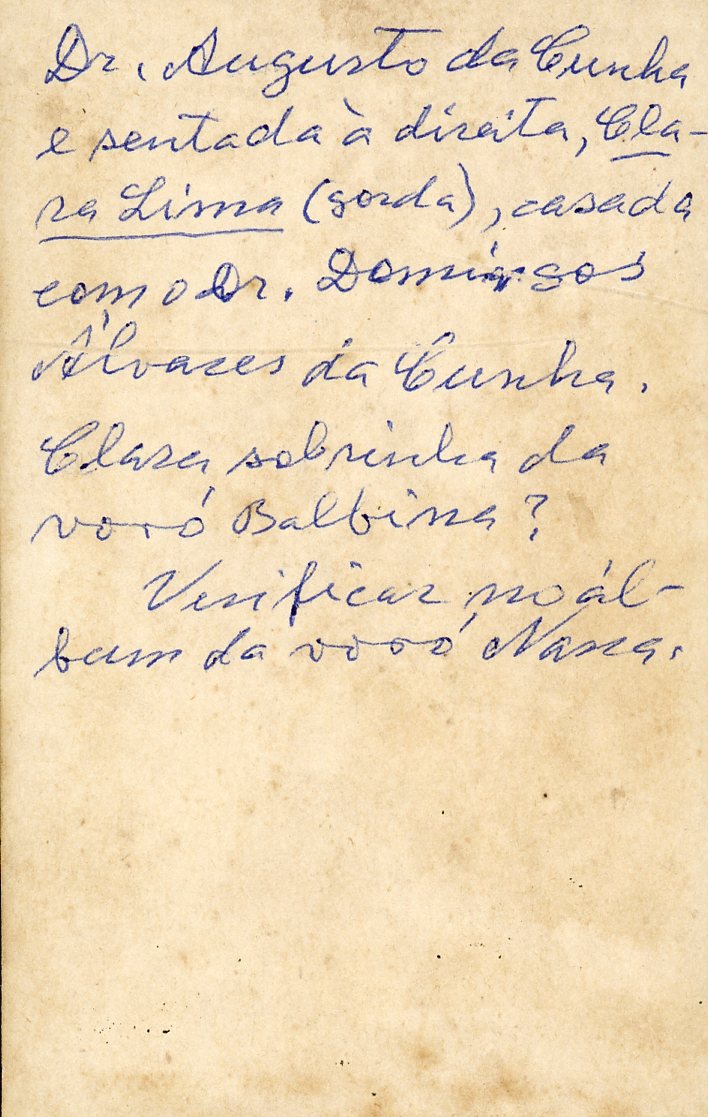 Dr. Augusto da Cunha
e sentada à direita, Cla-
ra Lima (gorda), casada
com o Dr. Domingos
Álvares da Cunha.
Clara sobrinha da
vovó Balbina?
Verificar no ál-
bum da vovó Nana.